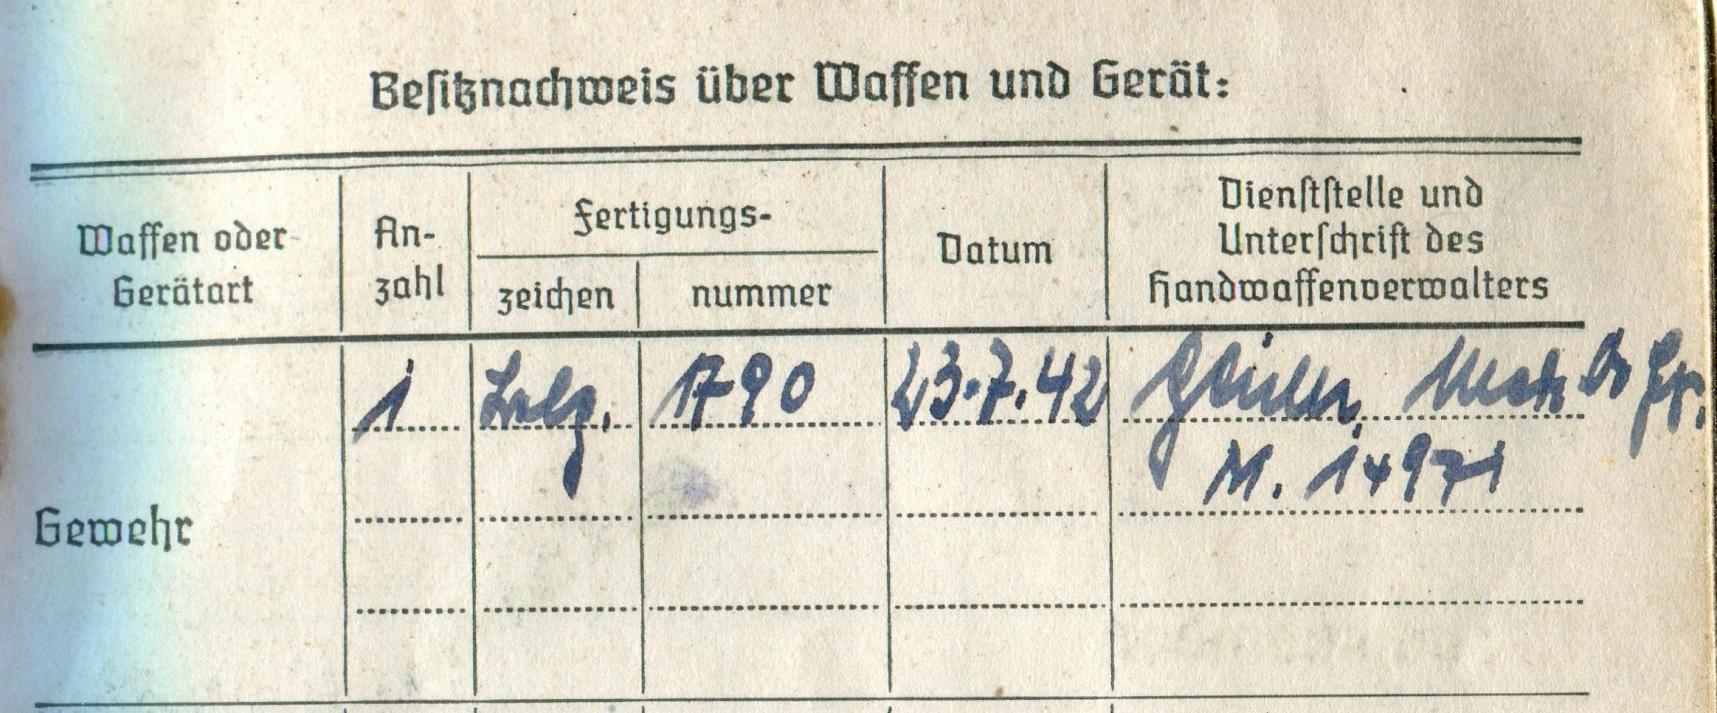 Besitznachweis über Waffen und Gerät:
Waffen oder
Gerätart
An-
zahl
Fertigungs-
zeichen
nummer
Datum
Dienststelle und
Unterschrift des
Handwaffenverwalters
Gewehr
1
1790
23.7.42
M. 14971